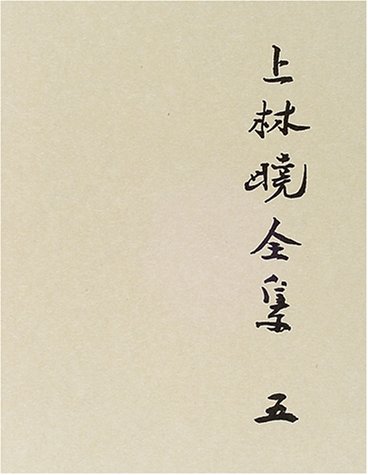 上林暁全集 五